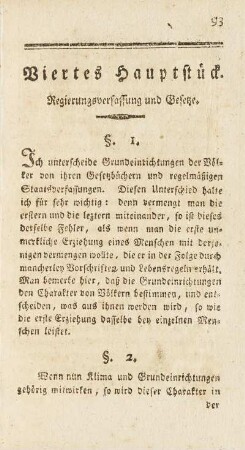 93
Viertes Hauptstück.
Regierungsverfassung und Gesetze.
§. 1.
Ich unterscheide Grundeinrichtungen der Völ-
ker von ihren Gesetzbüchern und regelmäßigen
Staatsverfassungen. Diesen Unterschied halte
ich für sehr wichtig: denn vermengt man die
erstern und die leztern miteinander, so ist dieses
derselbe Fehler, als wenn man die erste un-
merkliche Erziehung eines Menschen mit derje-
nigen vermengen wollte, die er in der Folge durch
mancherley Vorschriften und Lebensregeln erhält.
Man bemerke hier, daß die Grundeinrichtungen
den Charakter von Völkern bestimmen, und ent-
scheiden, was aus ihnen werden wird, so wie
die erste Erziehung dasselbe bey einzelnen Men-
schen leistet.
§. 2.
Wenn nun Klima und Grundeinrichtungen
gehörig mitwirken, so wird dieser Charakter in
der